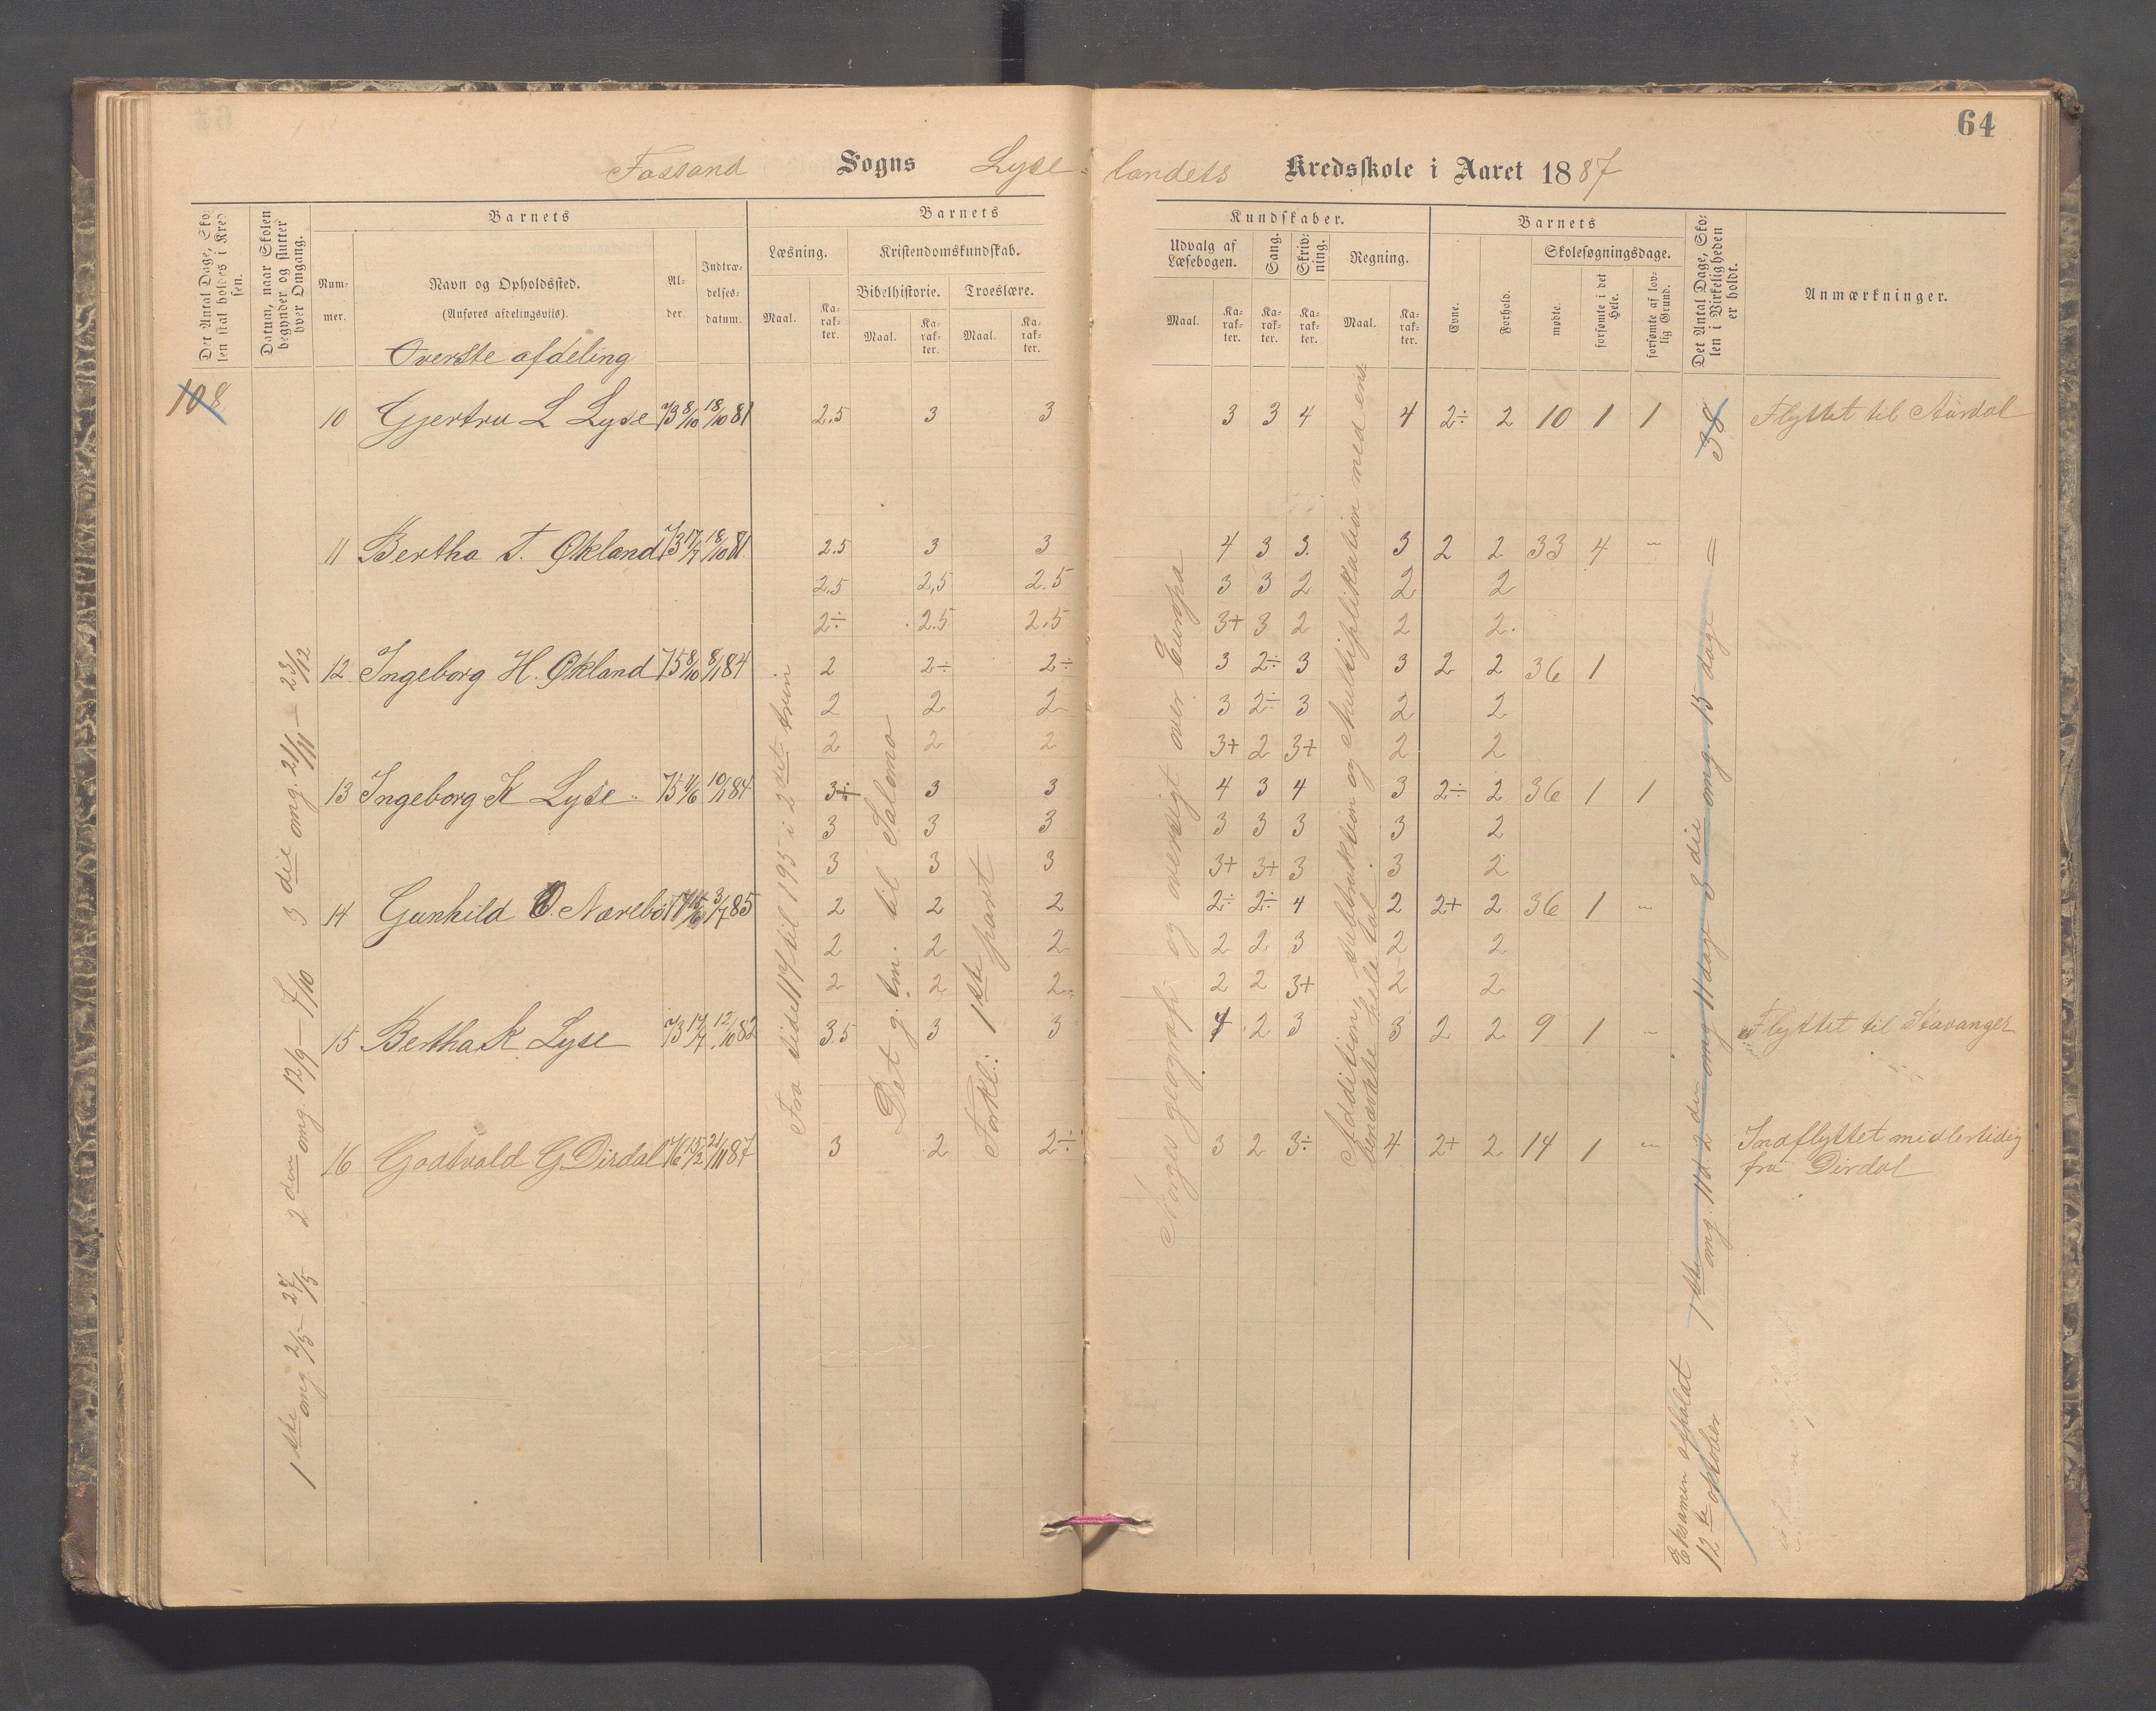 64
Fossand Sogns Lyse- landets Kredsskole i Aaret 1887
Det Antal Dage, Skolen skal holdes i Kredsen.
Datum, naar Skolen begynder og slutter hver Omgang.
Barnets
Nummer.
Navn og Opholdssted.
(Anføres afdelingsvils).
Alder.
Indtrædelsesdatum.
Barnets
Læsning.
Maal.
Karakter.
Kristendomskundskab.
Bibelhistorie.
Maal.
Karakter.
Troeslære.
Maal.
Karakter.
Kundskaber.
Udvalg af Læsebogen.
Maal.
Karakter.
Sang.
Karakter.
Skrivning.
Karakter.
Regning.
Maal.
Karakter.
Barnets
Evne.
Forhold.
Skolesøgningsdage.
mødte.
forsømte i det Hele.
forsømte af lovlig Grund.
Det Antal Dage, Skolen i Virkeligheden er holdt.
Anmærkninger.
Øverste afdeling
108
10 Gjertru L Lyse 73 8/10 18/10 81 2.5 3 3 3 3 4 4 2÷ 2 10 1 1 38 Flyttet til Aardal
11 Bertha T. Økland 73 17/7 18/10 81. 2.5 3 3 4 3 3. 3 2 2 33 4 "
2.5 2,5 2.5 3 3 2 2 2
2÷ 2.5 2.5 3+ 3 2 2 2.
12 Ingeborg H. Økland 75 8/10 8/1 84 2 2÷ 2÷ 3 2÷ 3 3 2 2 36 1
2 2 2 3 2÷ 3 2 2
2 2 2 3+ 2 3+ 2 2
13 Ingeborg K Lyse 75 1/6 10/1 84 3÷ 3 3 4 3 4 3 2÷ 2 36 1 1
3 3 3 3 3 3 3 2
3 3 3 3+ 3+ 3 3 2
14 Gunhild O. Nærebö 3/7 85 2 2 2 2÷ 2÷ 4 2 2+ 2 36 1 "
2 2 2 2 2 3 2 2
2 2 2 2 2 3+ 2 2
15 Bertha K. Lyse 73 17/7 12/10 82 3.5 3 3 4 2 3 3 2 2 9 1 " Flyttet til Stavanger
16 Godtvald G. Dirdal 76 15/2 21/11 87 3 2 2÷ 3 2 3÷ 4 2+ 2 14 1 " Indflyttet midlertidig
fra Dirdal
1 ste omg 2/5 – 28/5 2 den omg. 12/9 – 7/10 3 die omg. 21/11 – 23/12
Fra side 114 til 195 i 2 det trin
Det g. tm. til Salomo
Forkl: 1ste part
Norges geografi og oversigt over Europa
Addition, subtraktion og multiplikation med ens
benævnte hele tal.
1 ste omg. 11 d. 2 den omg 11 dage 3 die omg. 15 dage =
Eksamen afholdt
12 te oktober